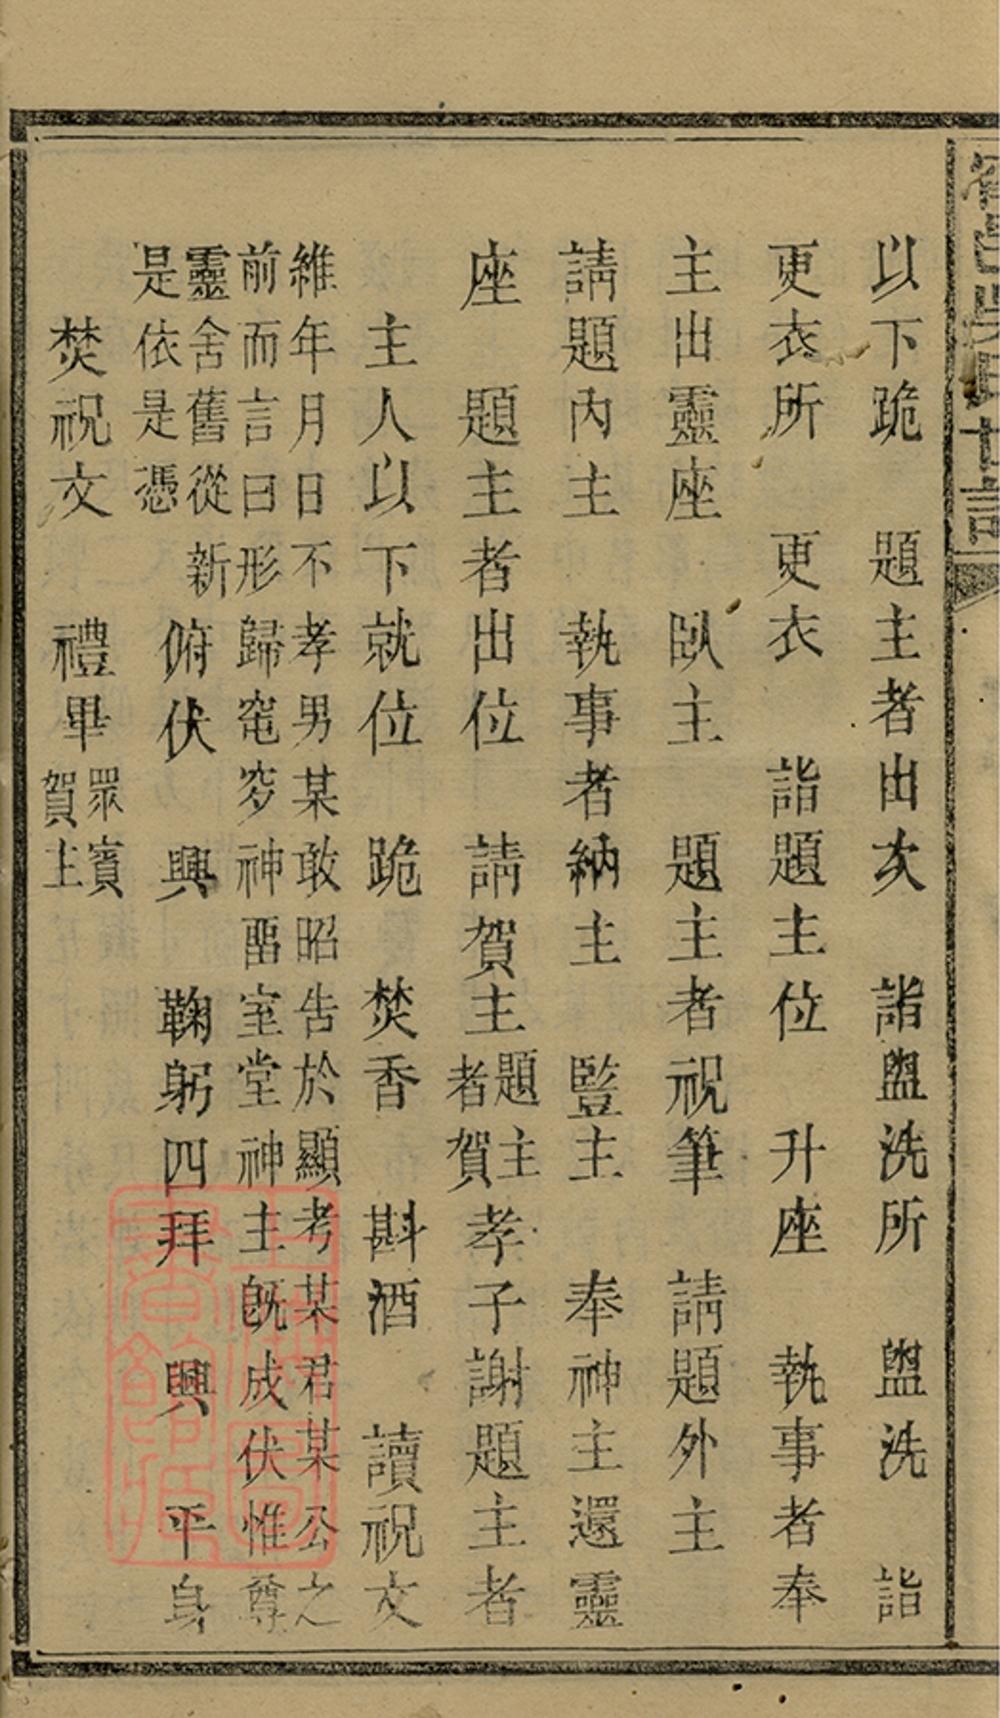 以下跪　題主者出次　詣盥洗所　盥洗　詣
更衣所　更衣　詣題主位　升座　執事者奉
主出靈座　臥主　題主者祝筆　請題外主
請題內主　執事者納主　豎主　奉神主還靈
座　題主者出位　請賀主題主者賀孝子謝題主者
主人以下就位　跪　焚香　斟酒　讀祝文
維年月日不孝男某敢昭告於顯考某君某公之
前而言曰形歸窀穸神畱室堂神主旣成伏惟尊
靈舍舊從新
是依是憑
俯伏　興　鞠躬四拜　興　平身
焚祝文　禮畢眾賓賀主